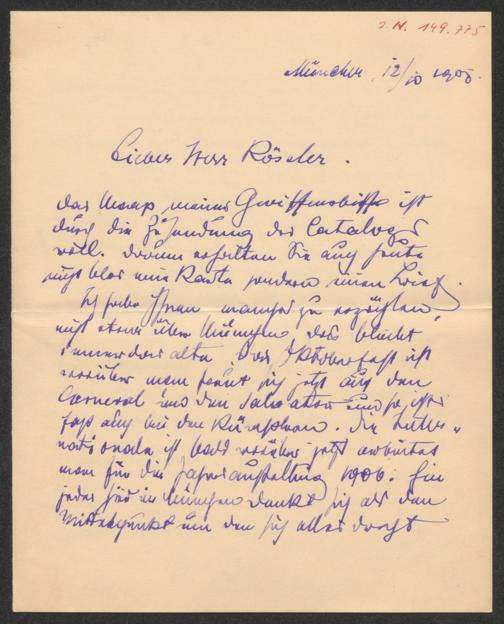 I.N. 149.775
München, 12/10 1905.
Lieber Herr Rössler.
das Maap meiner Gewissensbisse ist
durch die Zusendung des Cataloges
voll. Darum erhalten Sie auch heute
nicht blos eine Karte sondern einen Brief.
Ich habe Ihnen manches zu erzählen,
nicht etwa über München das bleibt
immer das alte. Das Oktoberfest ist
vorüber man freut sich jetzt auf den
Carneval und den Salvator und so ists
fast auch bei den Künstlern. Die Inter-
nationale ist bald vorüber jetzt arbeitet
man für die Jahresausstellung 1906. Ein
jeder hier in München denkt sich als den
Mittelpunkt um den sich alles dreht